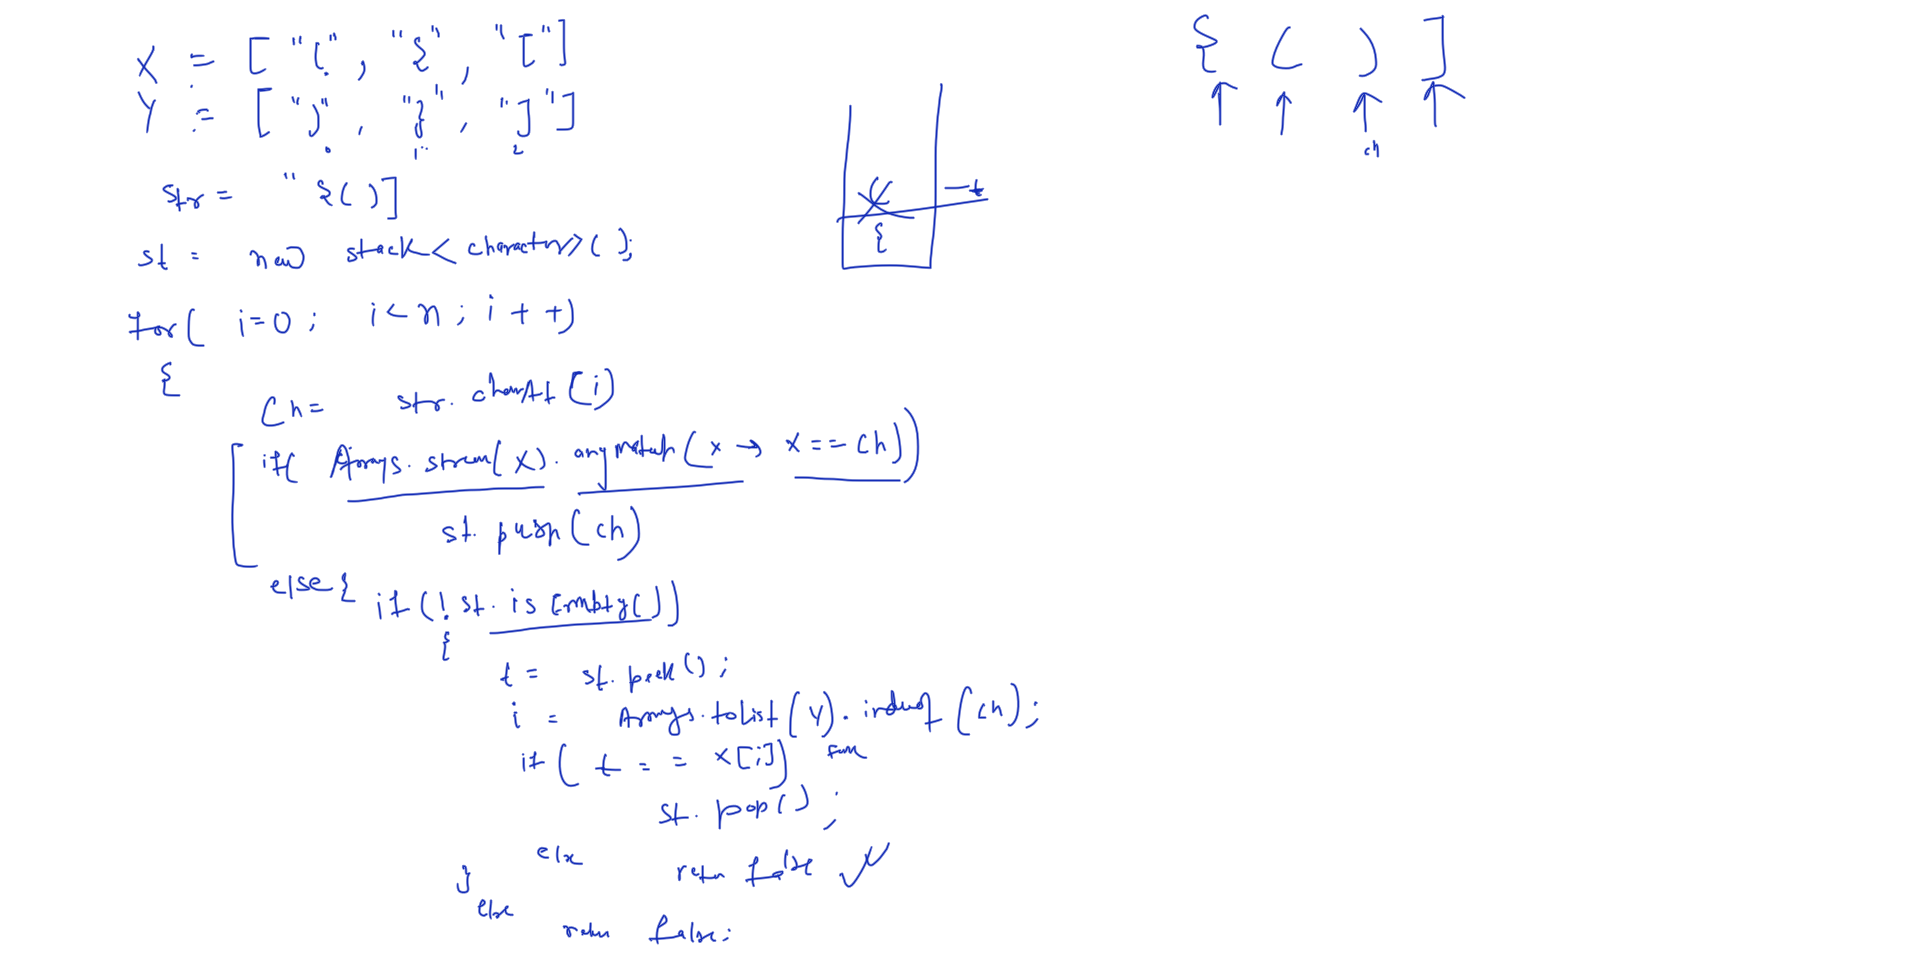 X = ["(", "{", "["]
Y = [")", "}", "]"]
0 1 2
str = "{()]
st = new stack<character>();
for( i=0; i<n; i++)
{
Ch= str.charAt(i)
if( Arrays.stream(X).anymatch(x → x==ch))
st.push(ch)
else{ if(!st.isEmpty())
{
t= st.peek();
i = Arrays.toList(Y).indexof(ch);
if( t== x[i])
st.pop();
else return false
}
else
return false;
{ ( ) ]
ch
( t
{